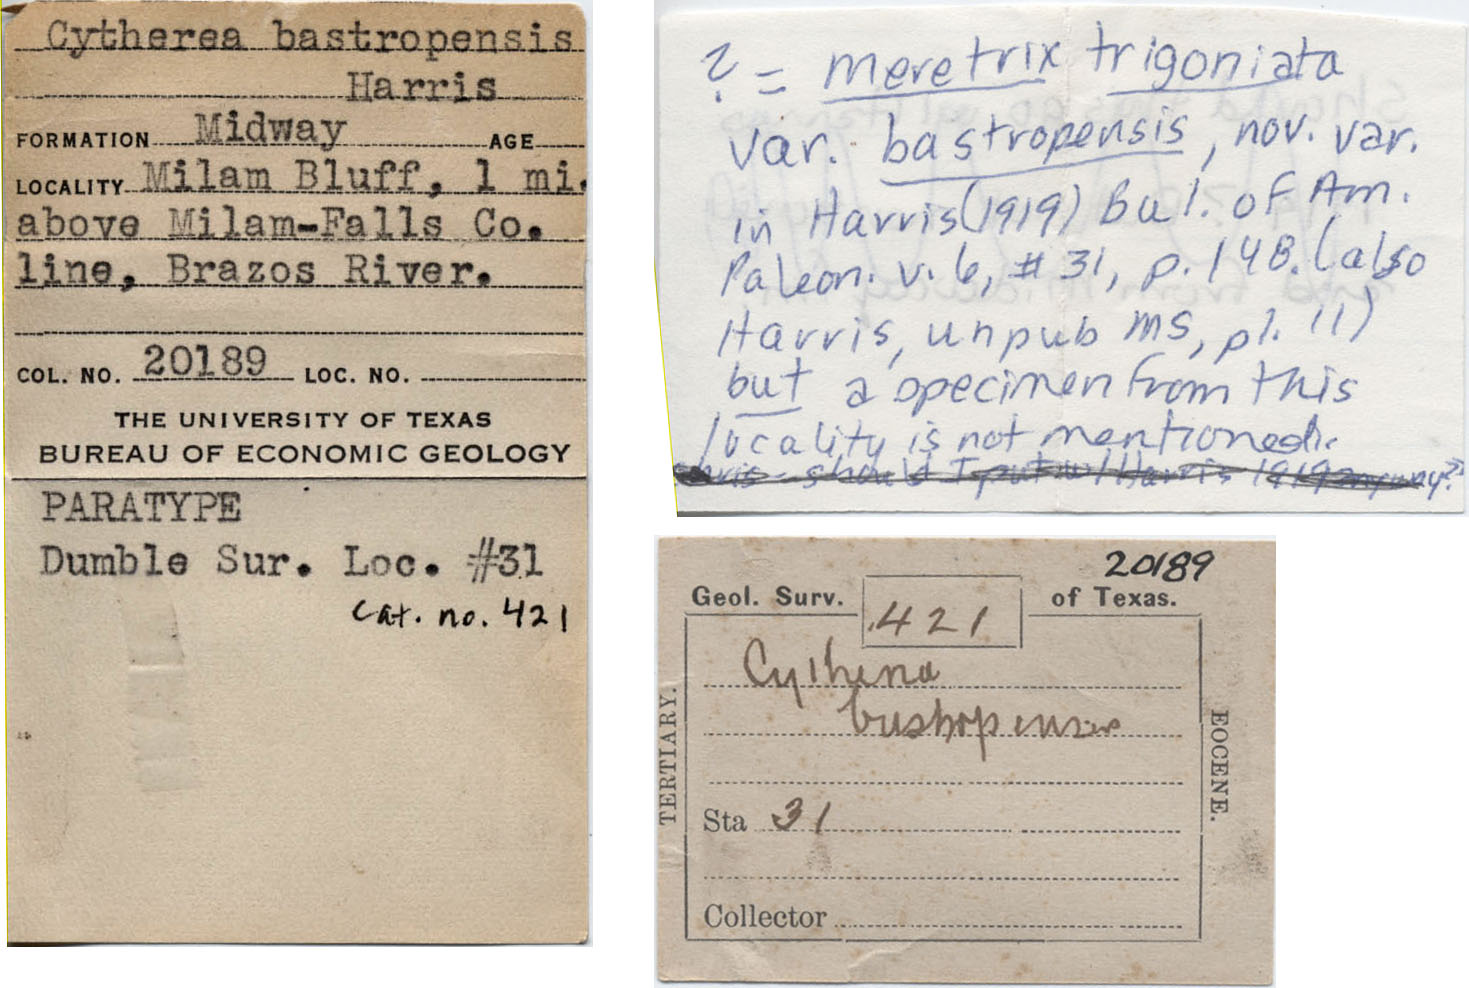 Cytherea bastropensis
Harris
FORMATION Midway AGE
LOCALITY Milam Bluff, 1 mi.
above Milam-Falls Co.
line, Brazos River.
COL. NO. 20189 LOC. NO.
THE UNIVERSITY OF TEXAS
BUREAU OF ECONOMIC GEOLOGY
PARATYPE
Dumble Sur. Loc. #31
Cat. no. 421
? = meretrix trigoniata
var. bastropensis, nov. var.
in Harris (1919) Bul. of Am.
Paleon. v. 6, #31, p. 148. (also
Harris, unpub MS, pl. 11)
but a specimen from this
locality is not mentioned.
should I put w/ Harris 1919 anyway?
20189
Geol. Surv. 421 of Texas.
TERTIARY.
Cytherea
bastropensis
EOCENE.
Sta 31
Collector